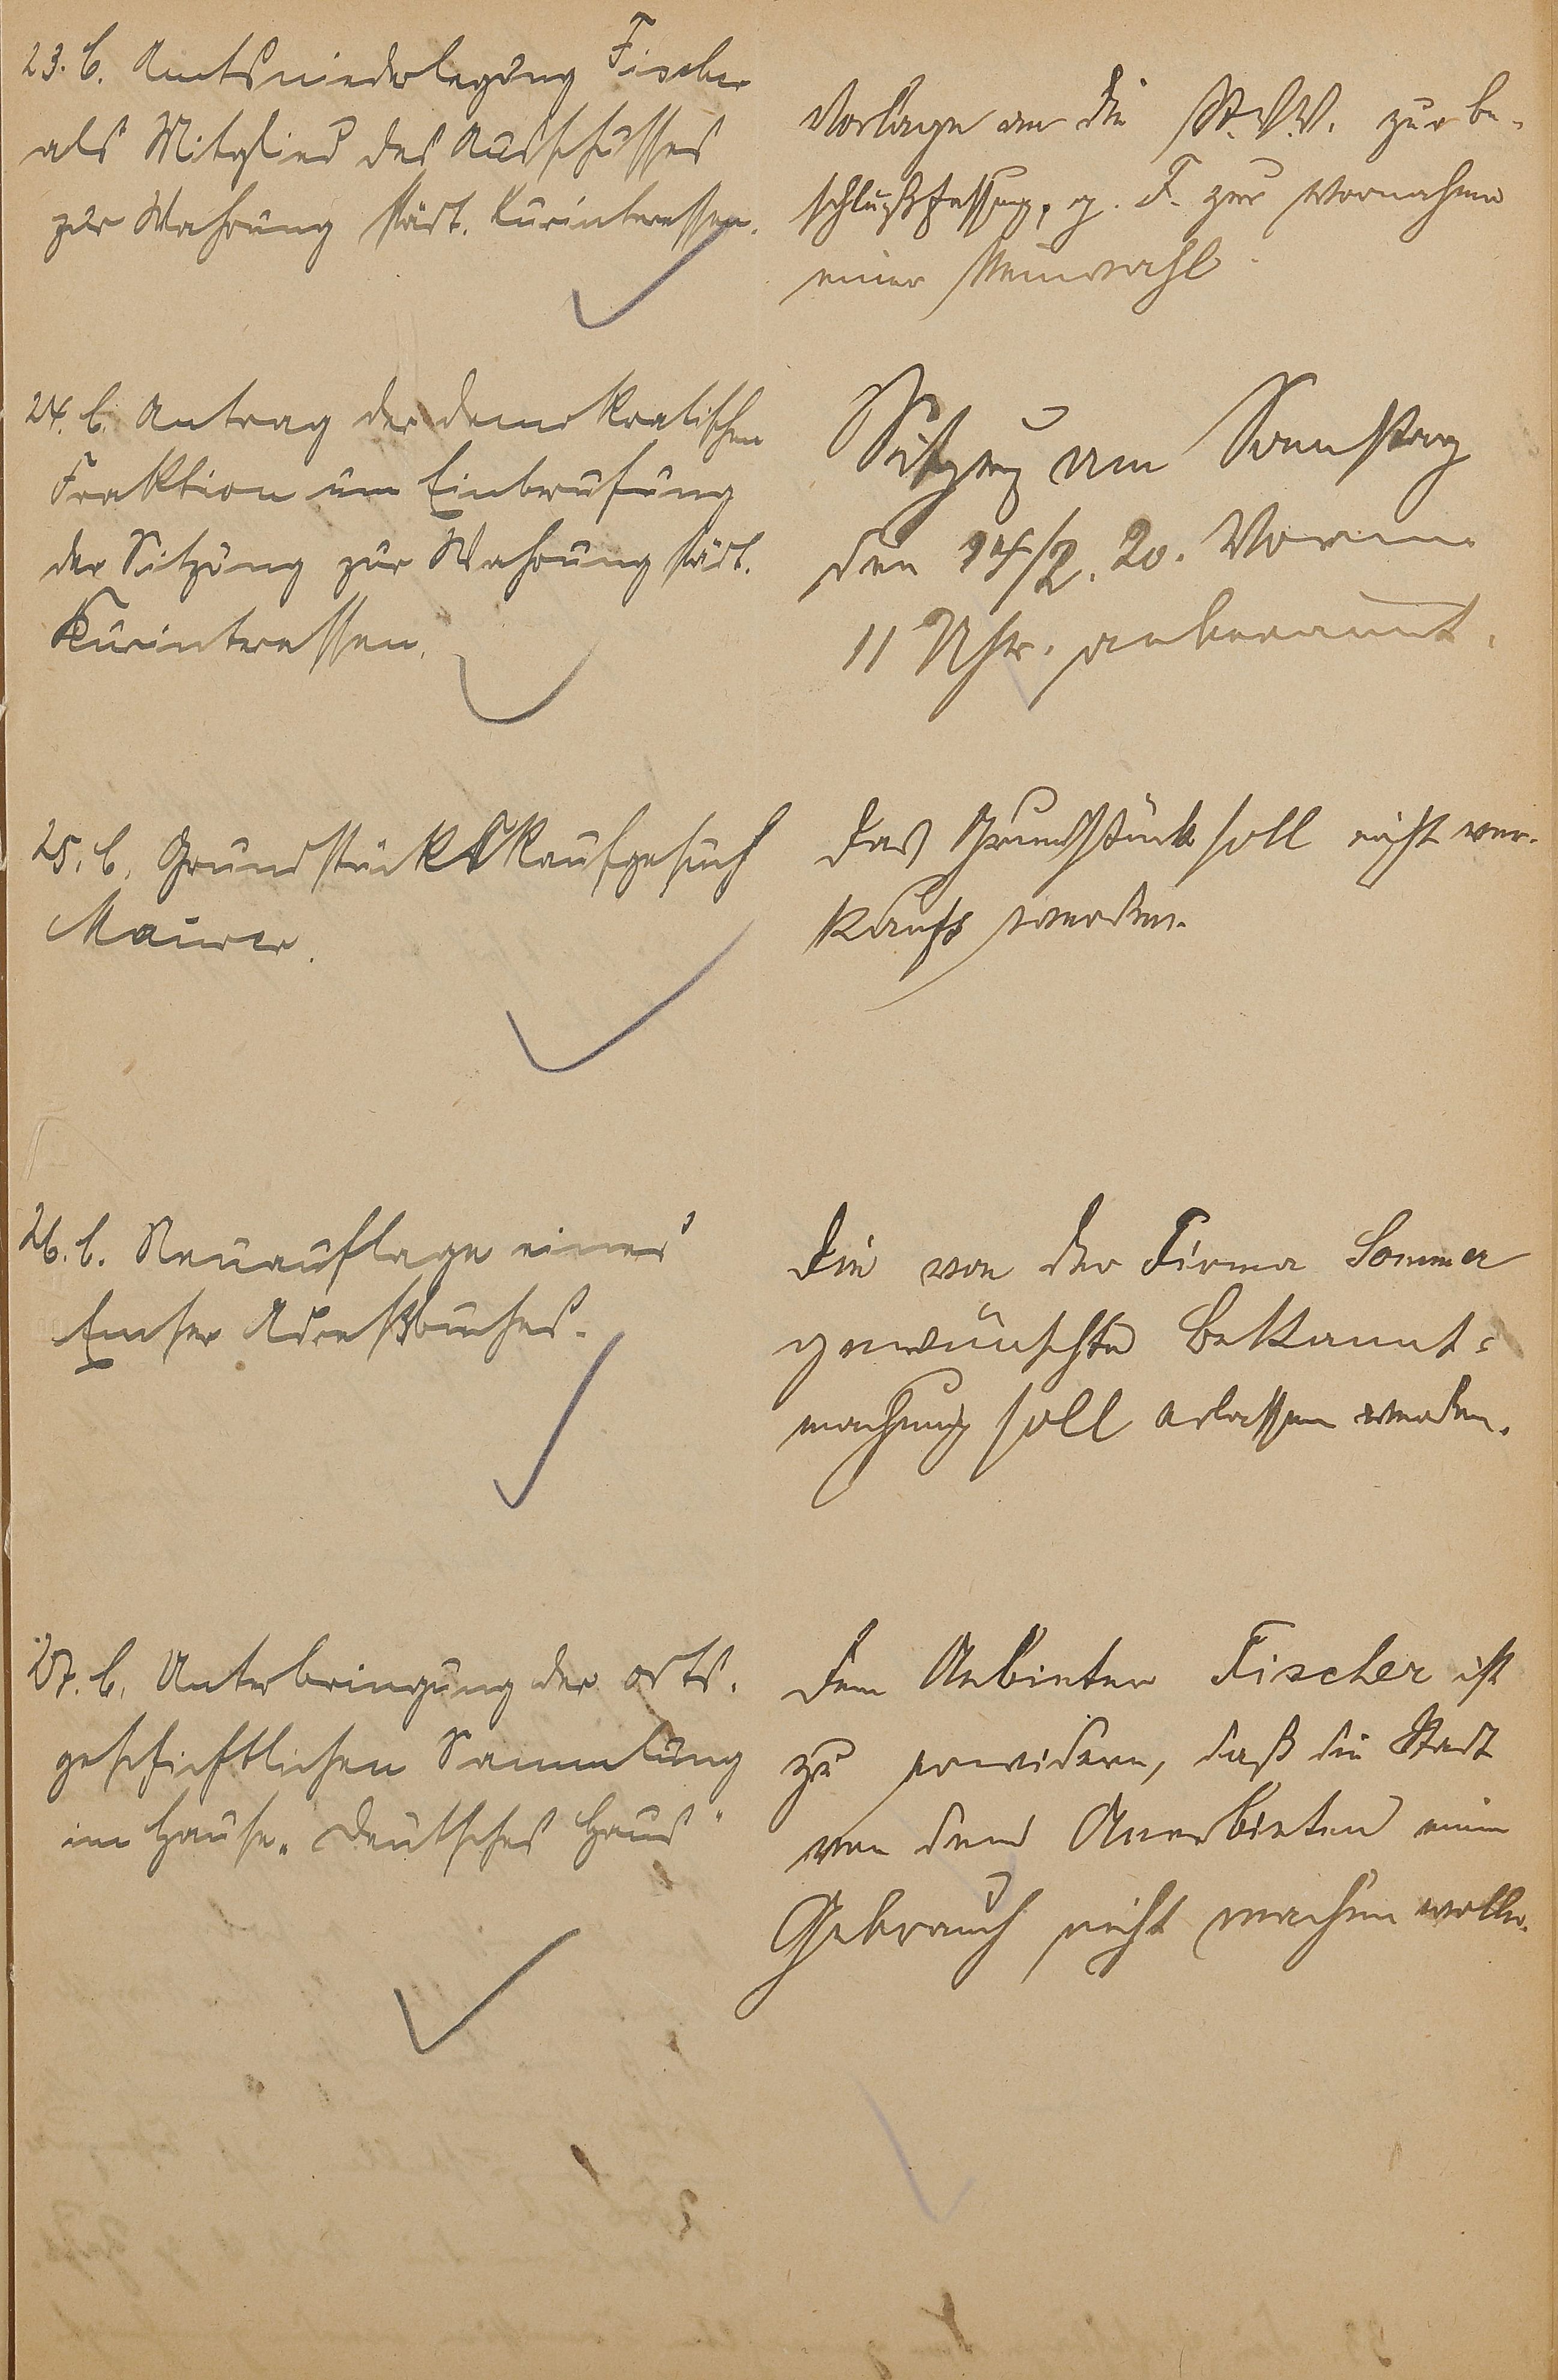 23. b. Amtsniederlegung Fischer
als Mitglied des Ausschusses
zur Wahrung städt. Kurinteressen.
Vorlage an die St.V.V. zur Be-
schlußfassung, g. F. zur Vornahme
einer Neuwahl.
24. b. Antrag der demokratischen
Fraktion um Einberufung
der Sitzung zur Wahrung städt.
Kurintressen.
Sitzung am Samstag
den 14/2. 20. Vorm.
11 Uhr. anberaumt.
25. b. Grundstückskaufgesuch
Maurer.
Das Grundstück soll nicht ver-
kauft werden.
26. b. Neuauflage eines
Emser Adreßbuches.
Die von der Firma Sommer
gewünschte Bekannt-
machung soll erlassen werden.
27. b. Unterbringung der orts-
geschichtlichen Sammlung
im Hause „Deutsches Haus"
Dem Anbieter Fischer ist
zu erwidern, daß die Stadt
von dem Anerbieten
Gebrauch nicht machen wolle.